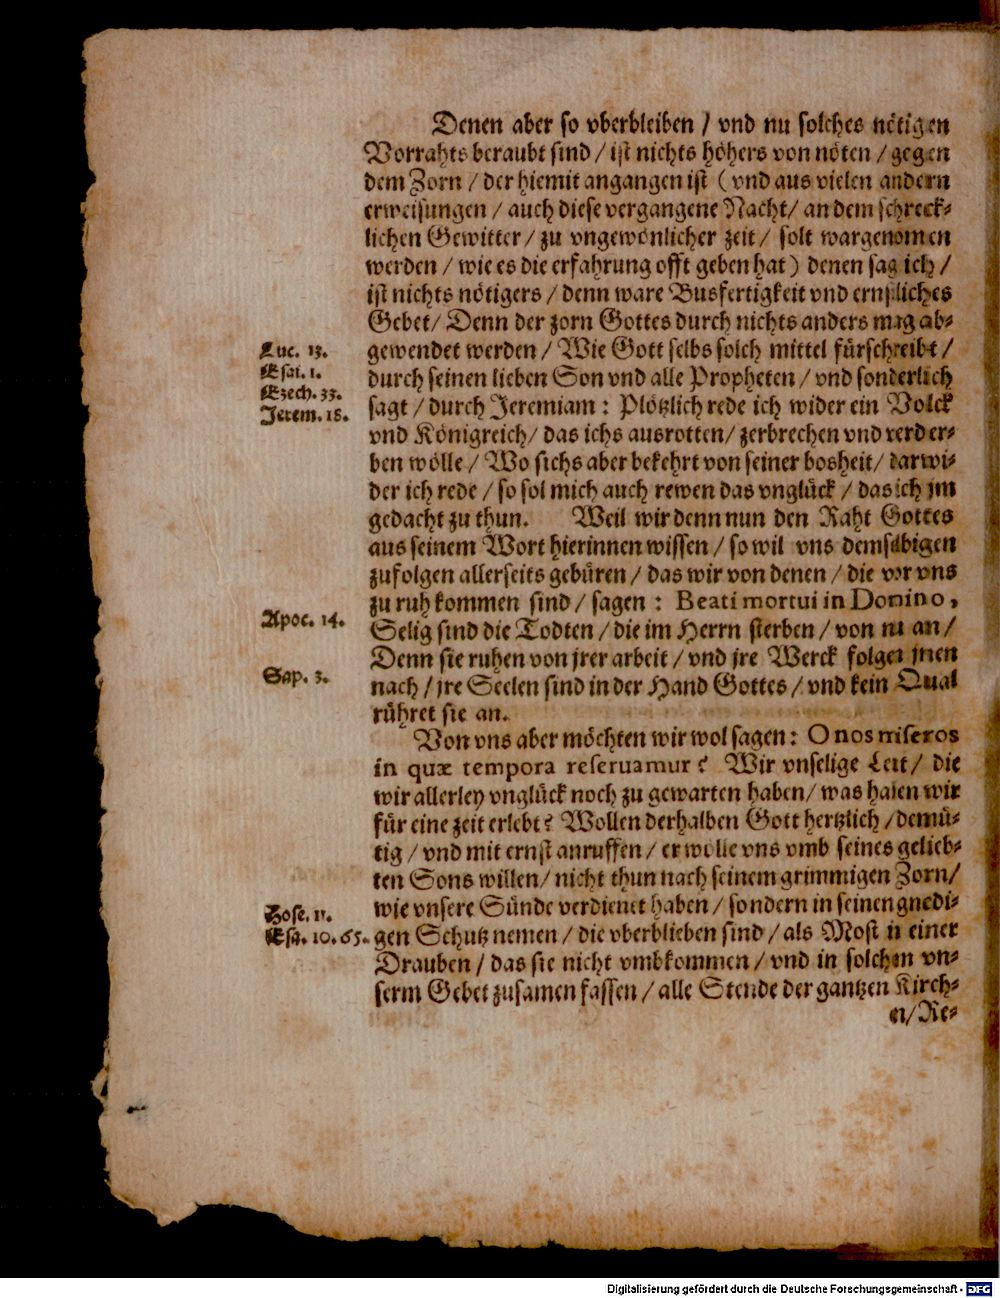 Denen aber so vberbleiben / vnd nu solches nötigen
Vorrahts beraubt sind / ist nichts höhers von nöten / gegen
dem Zorn / der hiemit angangen ist (vnd aus vielen andern
erweisungen / auch diese vergangene Nacht / an dem schreck-
lichen Gewitter / zu vngewönlicher zeit / solt wargenomen
werden / wie es die erfahrung offt geben hat) denen sag ich /
ist nichts nötigers / denn ware Busfertigkeit vnd ernstliches
Gebet / Denn der zorn Gottes durch nichts anders mag ab-
Luc. 13.
gewendet werden / Wie Gott selbs solch mittel fürschreibt /
Esai. 1.
durch seinen lieben Son vnd alle Propheten / vnd sonderlich
Ezech. 33.
sagt / durch Jeremiam : Plötzlich rede ich wider ein Volck
Jerem. 18.
vnd Königreich / das ichs ausrotten / zerbrechen vnd verder-
ben wölle / Wo sichs aber bekehrt von seiner bosheit / darwi-
der ich rede / so sol mich auch rewen das vnglück / das ich jm
gedacht zu thun. Weil wir denn nun den Raht Gottes
aus seinem Wort hierinnen wissen / so wil vns demselbigen
zufolgen allerseits gebüren / das wir von denen / die vor vns
zu ruh kommen sind / sagen : Beati mortui in Domino,
Apoc. 14.
Selig sind die Todten / die im Herrn sterben / von nu an /
Denn sie ruhen von jrer arbeit / vnd jre Werck folgen jnen
Sap. 3.
nach / jre Seelen sind in der Hand Gottes / vnd kein Qual
rühret sie an.
Von vns aber möchten wir wol sagen : O nos miseros
in quæ tempora reseruamur? Wir vnselige Leut / die
wir allerley vnglück noch zu gewarten haben / was haben wir
für eine zeit erlebt? Wollen derhalben Gott hertzlich / demü-
tig / vnd mit ernst anruffen / er wolle vns vmb seines gelieb-
ten Sons willen / nicht thun nach seinem grimmigen Zorn /
Hose. 11.
wie vnsere Sünde verdienet haben / sondern in seinen gnedi-
Esa. 10. 65.
gen Schutz nemen / die vberblieben sind / als Most in einer
Drauben / das sie nicht vmbkommen / vnd in solchem vn-
serm Gebet zusamen fassen / alle Stende der gantzen Kirch-
en / Re-
Digitalisierung gefördert durch die Deutsche Forschungsgemeinschaft - DFG